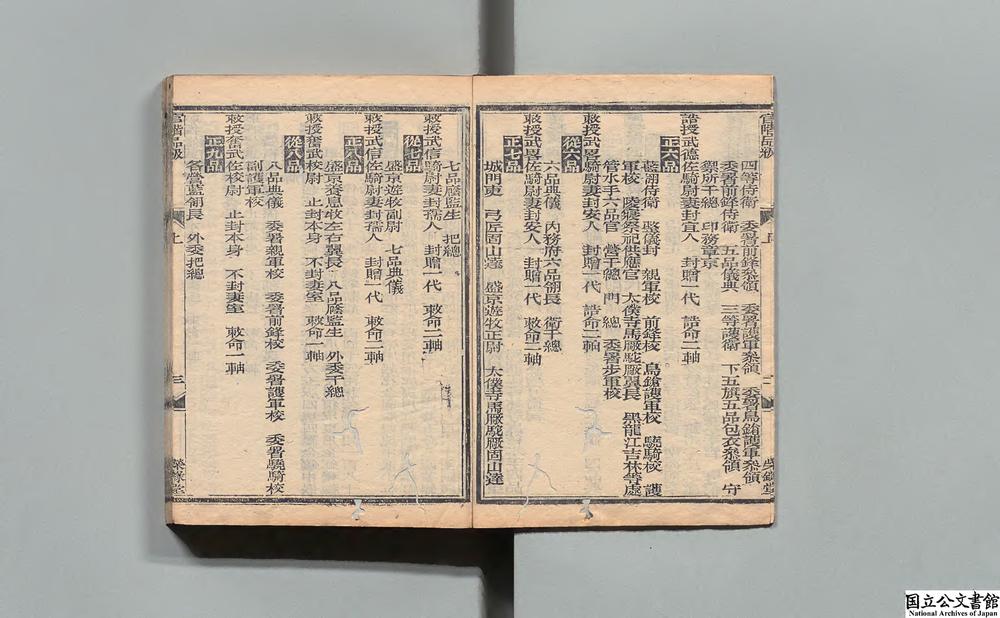 官階品級 上 二 榮錄堂
四等侍衛 委署前鋒叅領 委署護軍叅領 委署鳥鎗護軍叅領
委署前鋒侍衛 五品儀典 三等護衛 下五旗五品包衣叅領 守
禦所千總 印務章京
誥授武德佐騎尉妻封宜人 封贈一代 誥命二軸
正六品
藍翎侍衛 整儀尉 親軍校 前鋒校 鳥鎗護軍校 驍騎校 護
軍校 陵寢祭祀供應官 太僕寺馬厰駝厰翼長 黑龍江吉林等處
管水手六品官 營千總 門 總 委署步軍校
敕授武畧騎尉妻封安人 封贈一代 誥命二軸
從六品
六品典儀 內務府六品領長 衛千總
敕授武畧佐騎尉妻封安人 封贈一代 敕命二軸
正七品
城門吏 弓匠固山達 盛京遊牧正尉 太僕寺馬厰駝厰固山達
七品廕監生 把總
敕授武信騎尉妻封孺人 封贈一代 敕命二軸
從七品
盛京遊牧副尉 七品典儀
敕授武信佐騎尉妻封孺人 封贈一代 敕命二軸
正八品
盛京養息牧左右翼長 八品廕監生 外委千總
敕授奮武校尉 止封本身 不封妻室 敕命一軸
從八品
八品典儀 委署親軍校 委署前鋒校 委署護軍校 委署驍騎校
副護軍校
敕授奮武佐校尉 止封本身 不封妻室 敕命一軸
正九品
各營藍翎長 外委把總
官階品級 上 三 榮錄堂
国立公文書館
National Archives of Japan